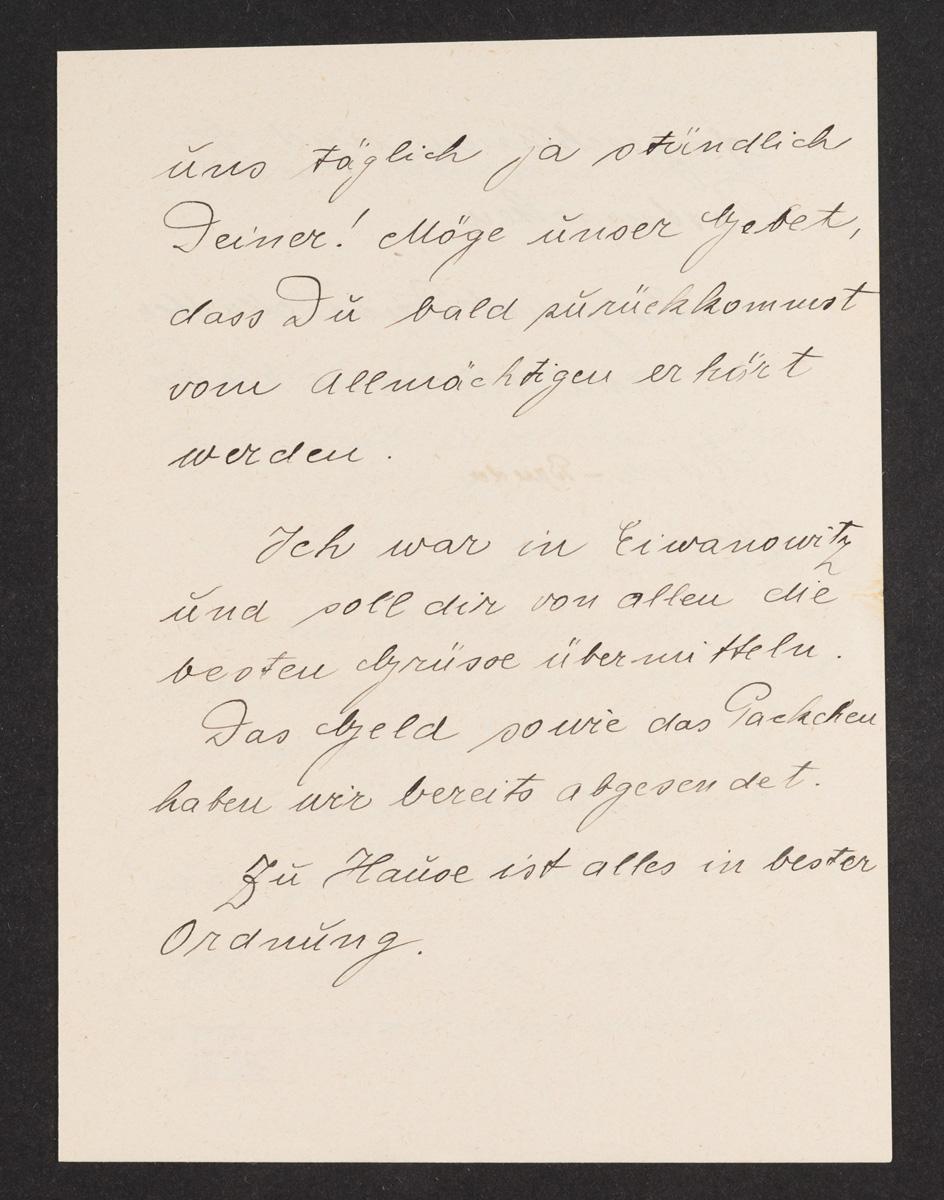 uns täglich ja stündlich
Deiner! Möge unser Gebet,
dass Du bald zurückkommst
vom Allmächtigen erhört
werden.
Ich war in Eiwanowitz
und soll dir von allen die
besten Grüsse übermitteln.
Das Geld sowie das Packchen
haben wir bereits abgesendet.
Zu Hause ist alles in bester
Ordnung.